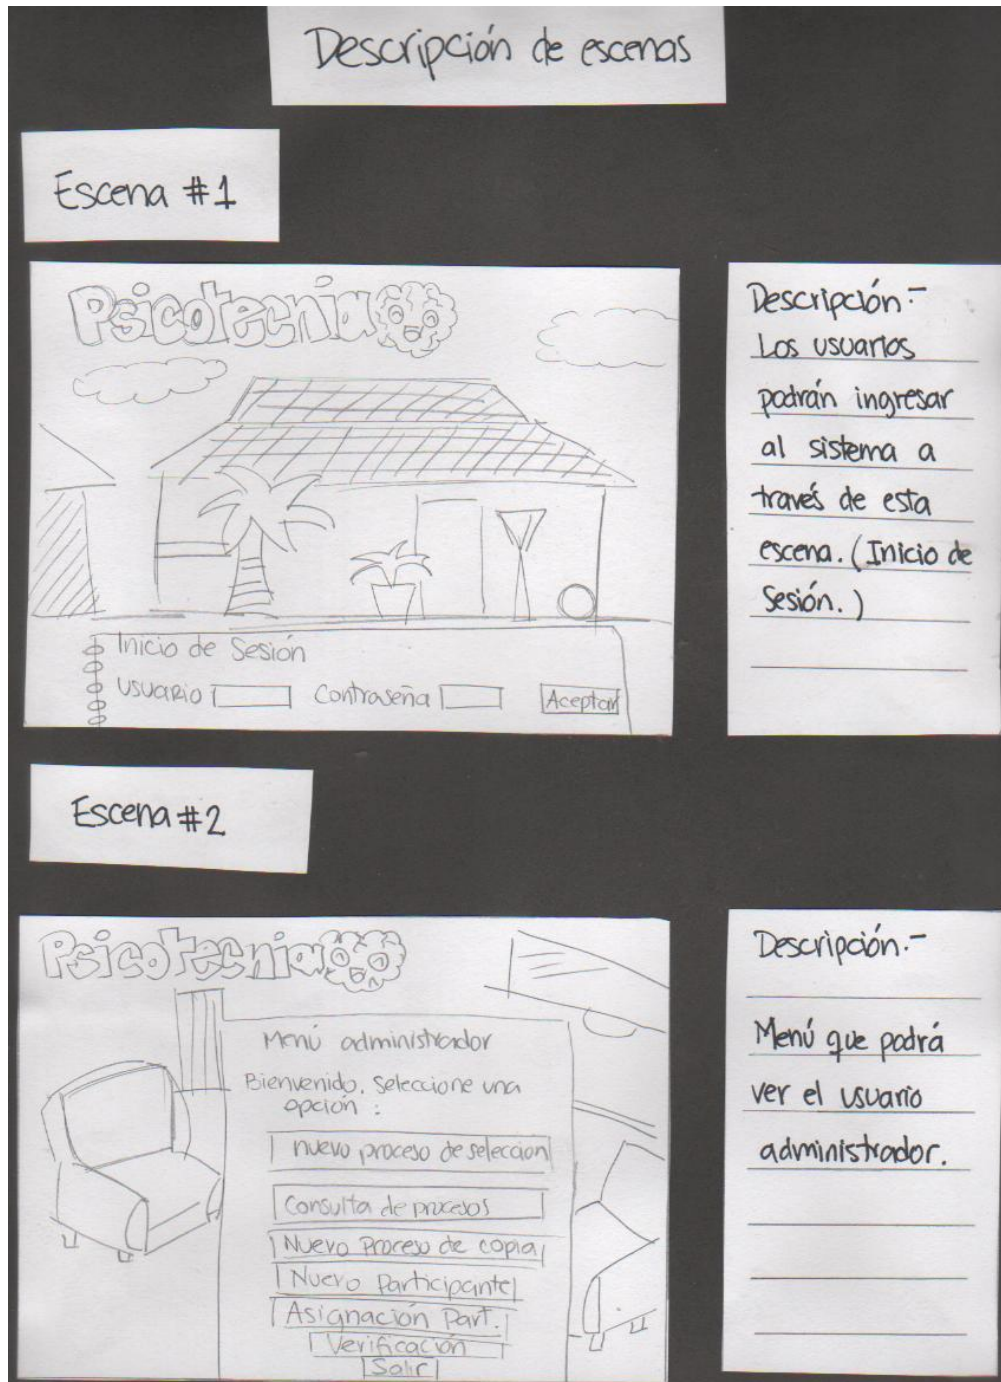 Descripción de escenas
Escena #1
Psicotecnia
Inicio de Sesión
Usuario Contraseña Aceptar
Descripción.-
Los usuarios
podrán ingresar
al sistema a
través de esta
escena. (Inicio de
Sesión.)
Escena #2
Psicotecnia
Menú administrador
Bienvenido. Seleccione una
opción :
nuevo proceso de seleccion
Consulta de procesos
Nuevo Proceso de copia
Nuevo Participante
Asignación Part.
Verificación
Salir
Descripción.-
Menú que podrá
ver el usuario
administrador.